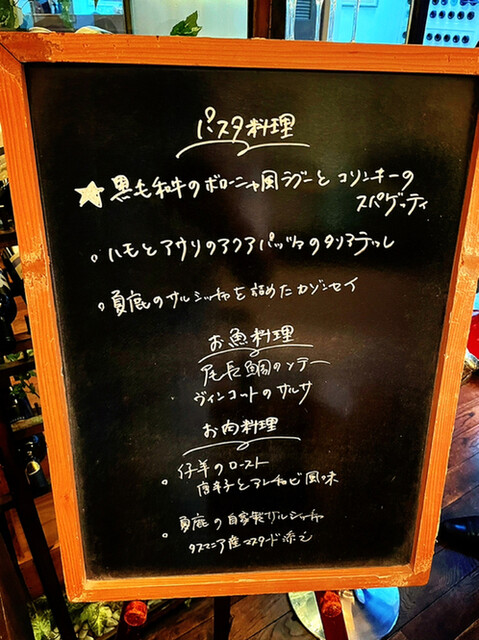 パスタ料理
★黒毛和牛のボローニャ風ラグーとコリンキーの
スパゲッティ
。ハモとアサリのアクアパッツァのタリアテッレ
。夏鹿のサルシッチャを詰めたカゾンセイ
お魚料理
尾長鯛のソテー
ヴィンコットのサルサ
お肉料理
。仔羊のロースト
唐辛子とアンチョビ風味
。夏鹿の自家製サルシッチャ
タスマニア産マスタード添え